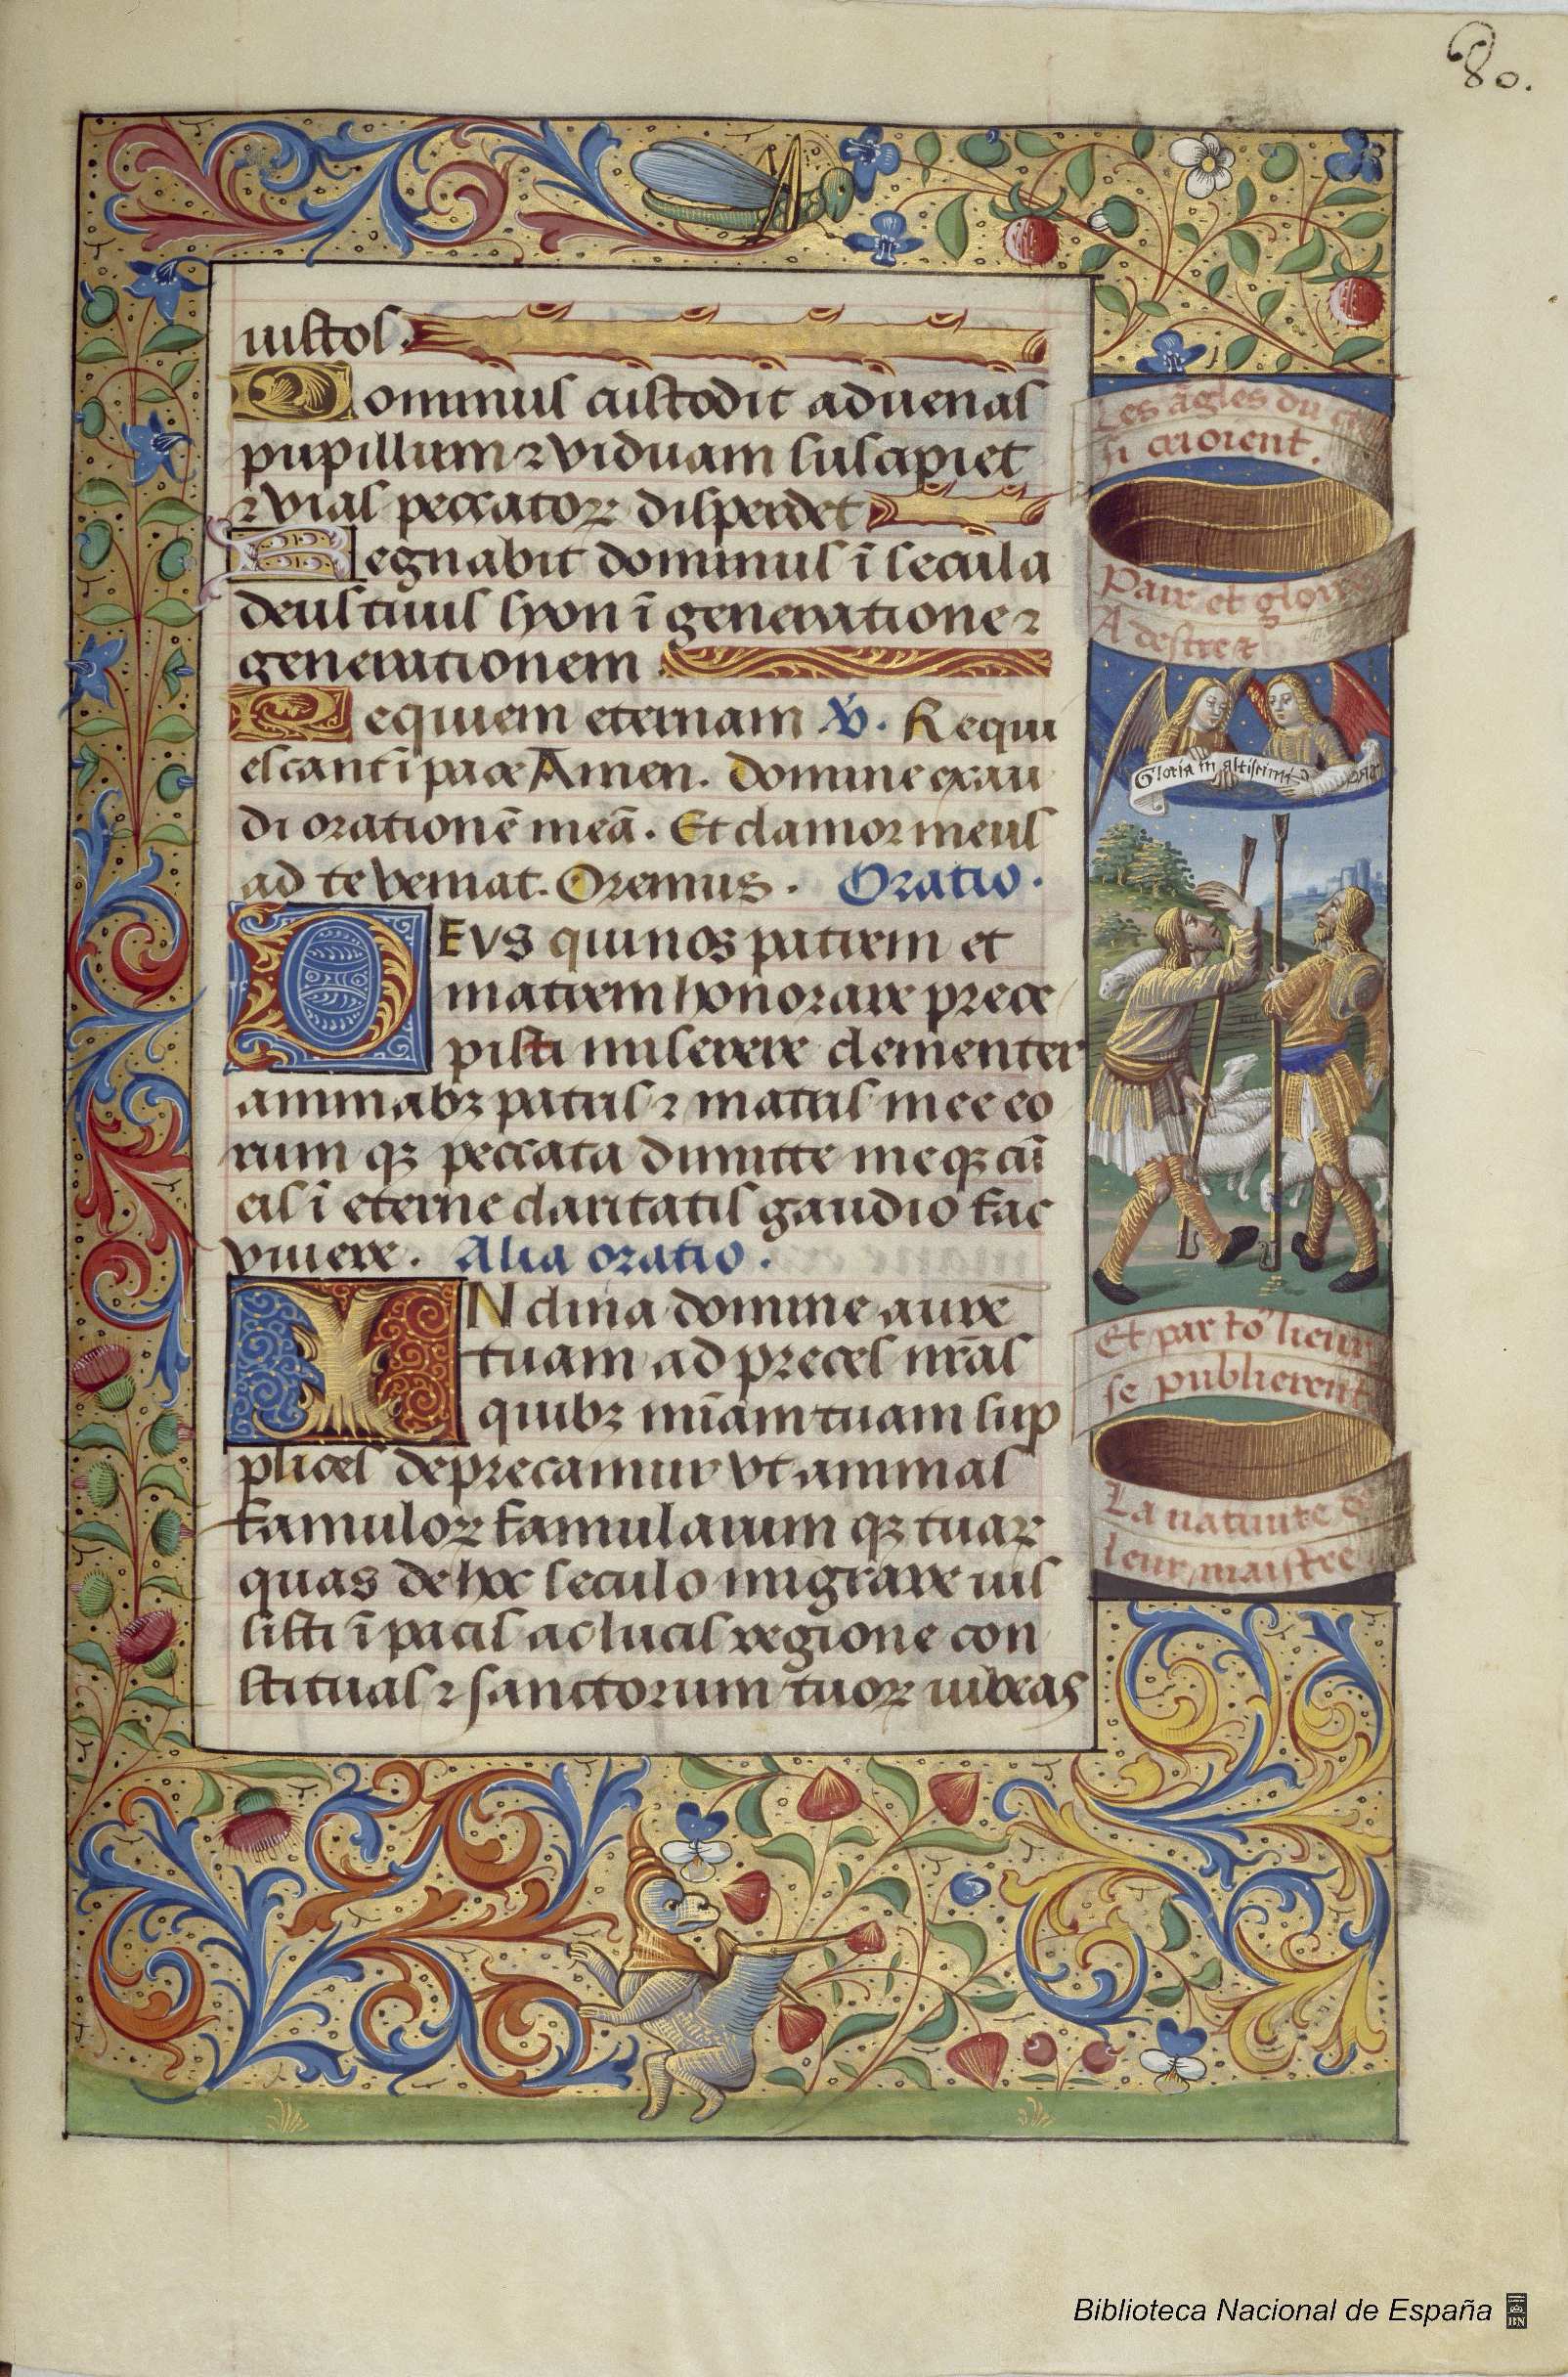 80.
iustos.
Dominus custodit aduenas
pupillum ⁊ viduam suscapiet
⁊ vias peccatoꝝ disperdet
Regnabit dominus ī secula
deus tuus syon ī generatione ⁊
generationem
Requiem eternam ℣. Requi
escant ī pace Amen. Domine exau
di orationē meā. Et clamor meus
ad te veniat. Oremus. Oratio.
DEVS qui nos patrem et
matrem honorare prece
pisti miserere clementer
animabꝫ patris ⁊ matris mee eo
rum qꝫ peccata dimitte meqꝫ cū
eis ī eterne claritatis gaudio fac
viuere. Alia oratio.
INclina domine aurē
tuam ad preces nr̄as
quibꝫ mīam tuam sup
plices deprecamur vt animas
famuloꝝ famularum qꝫ tuaꝝ
quas de hoc seculo migrare ius
sisti ī pacis ac lucis regione con
stituas ⁊ sanctorum tuoꝝ iubeas
Les āgles du
si crioient.
Paix et gloire
A destre ⁊
Gloria in altissimis
Et par to9 lieux
se publierent
La natiuite de
leur maistre.
Biblioteca Nacional de España
BN